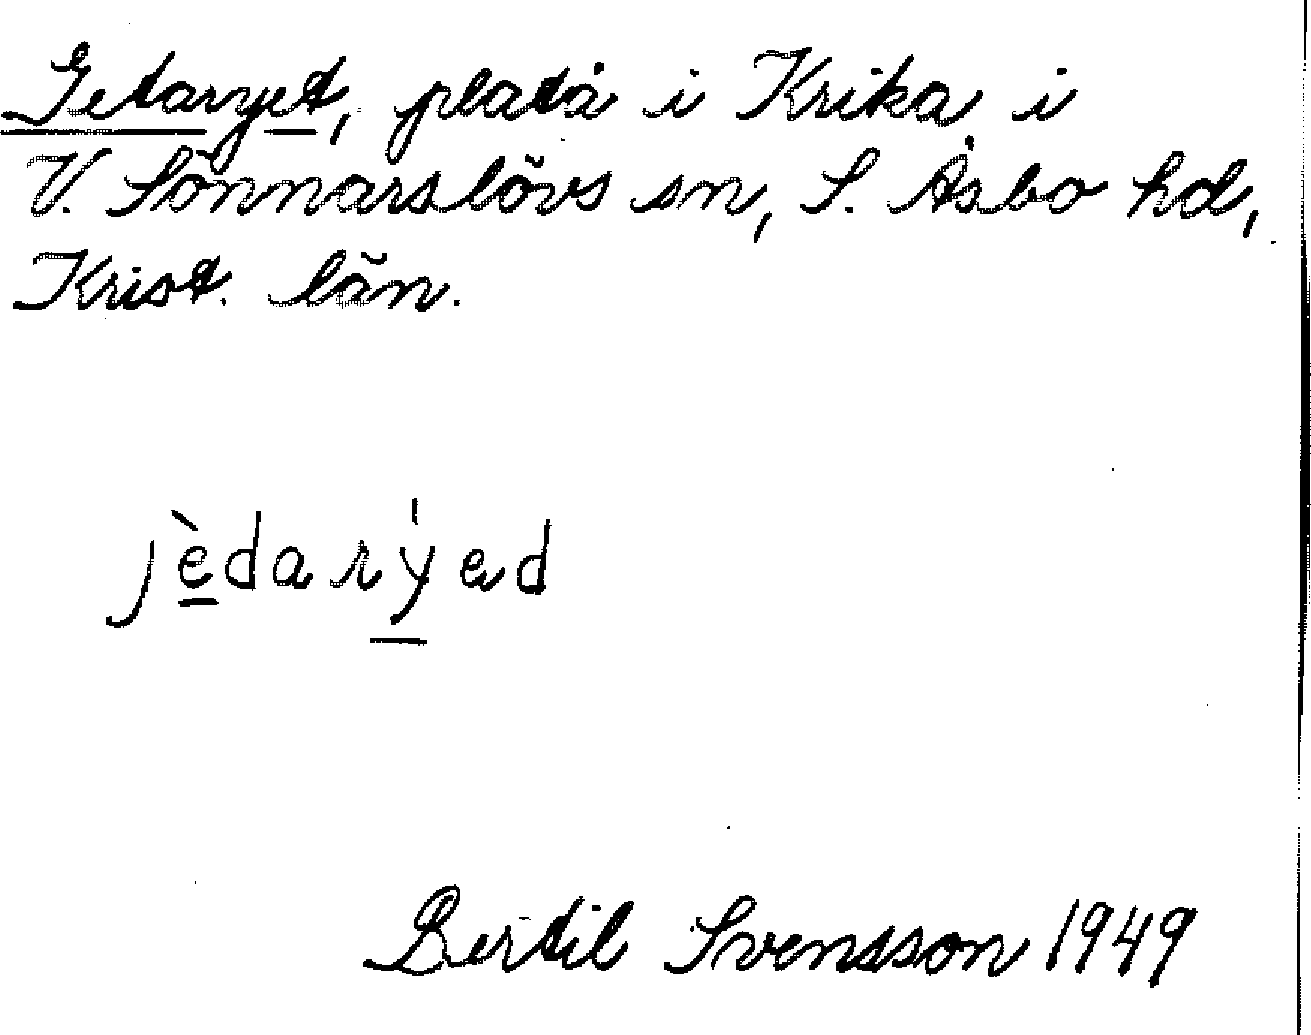 Getaryet, platå i Krika i
V. Sönnarslövs sn, S. Åsbo hd,
Krist. län.
jèdarýed
Bertil Svensson 1949